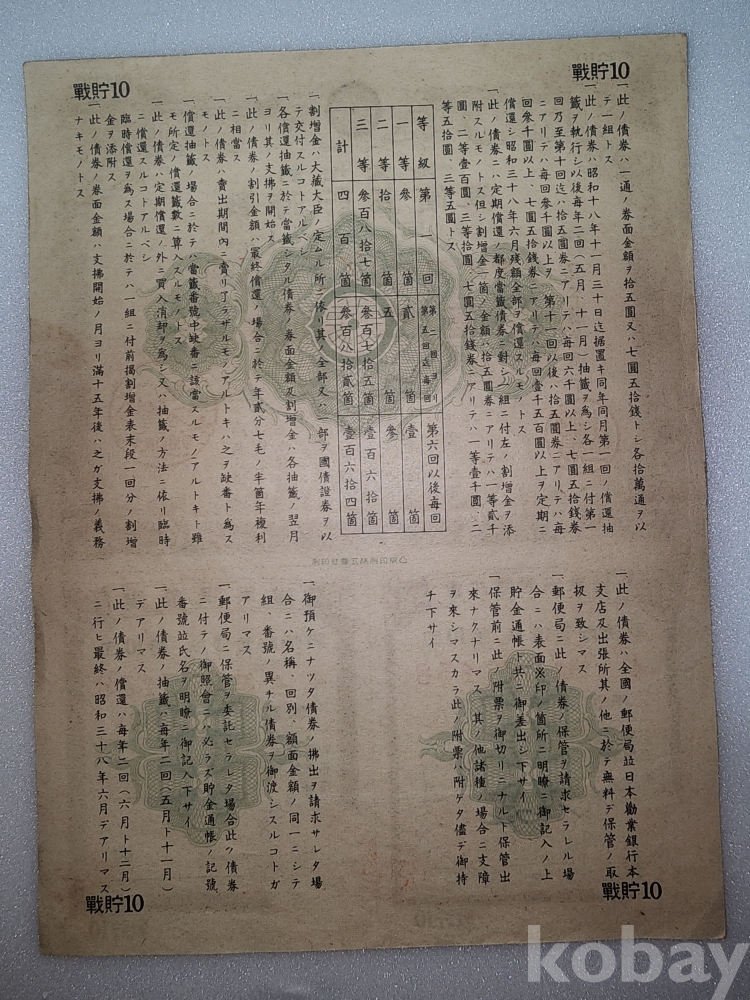 戰貯10
戰貯10
一、此ノ債券ハ一通ノ券面金額ヲ拾五圓又ハ七圓五拾錢トシ各拾萬通ヲ以
テ一組トス
一、此ノ債券ハ昭和十八年十一月三十日迄据置キ同年同月第一回ノ償還抽
籤ヲ執行シ以後每年二回(五月、十一月)抽籤ヲ爲シ各一組ニ付第一
回乃至第十回迄ハ拾五圓券ニアリテハ每回六千圓以上、七圓五拾錢券
ニアリテハ每回參千圓以上ヲ、第十一回以後ハ拾五圓券ニアリテハ每
回參千圓以上、七圓五拾錢券ニアリテハ每回壹千五百圓以上ヲ定期ニ
償還シ昭和三十八年六月殘額全部ヲ償還スルモノトス
一、此ノ債券ニハ定期償還ノ都度當籤債券ニ對シ一組ニ付左ノ割增金ヲ添
附スルモノトス但シ割增金一箇ノ金額ハ拾五圓券ニアリテハ一等貳千
圓、二等壹百圓、三等拾圓、七圓五拾錢券ニアリテハ一等壹千圓、二
等五拾圓、三等五圓トス
等級 第一回 第二回ヨリ第五回迄每回 第六回以後每回
一等 參箇 貳箇 壹箇
二等 拾箇 五箇 參箇
三等 參百八拾七箇 參百七拾五箇 壹百六拾箇
計 四百箇 參百八拾貳箇 壹百六拾四箇
一、割增金ハ大藏大臣ノ定ムル所ニ依リ其ノ全部又ハ一部ヲ國債證券ヲ以
テ交付スルコトアルベシ
一、各償還抽籤ニ於テ當籤シタル債券ノ券面金額及割增金ハ各抽籤ノ翌月
ヨリ其ノ支拂ヲ開始ス
一、此ノ債券ノ割引金額ハ最終償還ノ場合ニ於テ年貳分七毛ノ半箇年複利
ニ相當ス
一、此ノ債券ハ賣出期間內ニ賣リ了ラザルモノアルトキハ之ヲ缺番ト爲ス
モノトス
一、償還抽籤ノ場合ニ於テハ當籤番號中缺番ニ該當スルモノアルトキト雖
モ所定ノ償還籤數ニ算入スルモノトス
一、此ノ債券ハ定期償還ノ外ニ買入消却ヲ爲シ又ハ抽籤ノ方法ニ依リ臨時
ニ償還スルコトアルベシ
臨時償還ヲ爲ス場合ニ於テハ一組ニ付前揭割增金表末段一回分ノ割增
金ヲ添附ス
一、此ノ債券ノ券面金額ハ支拂開始ノ月ヨリ滿十五年後ハ之ガ支拂ノ義務
ナキモノトス
一、此ノ債券ハ全國ノ郵便局竝日本勸業銀行本
支店及出張所其ノ他ニ於テ無料デ保管ノ取
扱ヲ致シマス
一、郵便局ニ此ノ債券ノ保管ヲ請求セラレル場
合ニハ表面※印ノ箇所ニ明瞭ニ御記入ノ上
貯金通帳ト共ニ御差出シ下サイ
一、保管前ニ此ノ附票ヲ御切リニナルト保管出
來ナクナリマス 其ノ他諸種ノ場合ニ支障
ヲ來シマスカラ此ノ附票ハ附ケタ儘デ御持
チ下サイ
一、御預ケニナツタ債券ノ拂出ヲ請求サレタ場
合ニハ名稱、回別、額面金額ノ同一ニシテ
組、番號ノ異ナル債券ヲ御渡シスルコトガ
アリマス
一、郵便局ニ保管ヲ委託セラレタ場合此ノ債券
ニ付テノ御照會ニハ必ラズ貯金通帳ノ記號
番號竝氏名ヲ明瞭ニ御記入下サイ
一、此ノ債券ノ抽籤ハ每年二回(五月ト十一月)
デアリマス
一、此ノ債券ノ償還ハ每年二回(六月ト十二月)
ニ行ヒ最終ハ昭和三十八年六月デアリマス
戰貯10
戰貯10
kobay